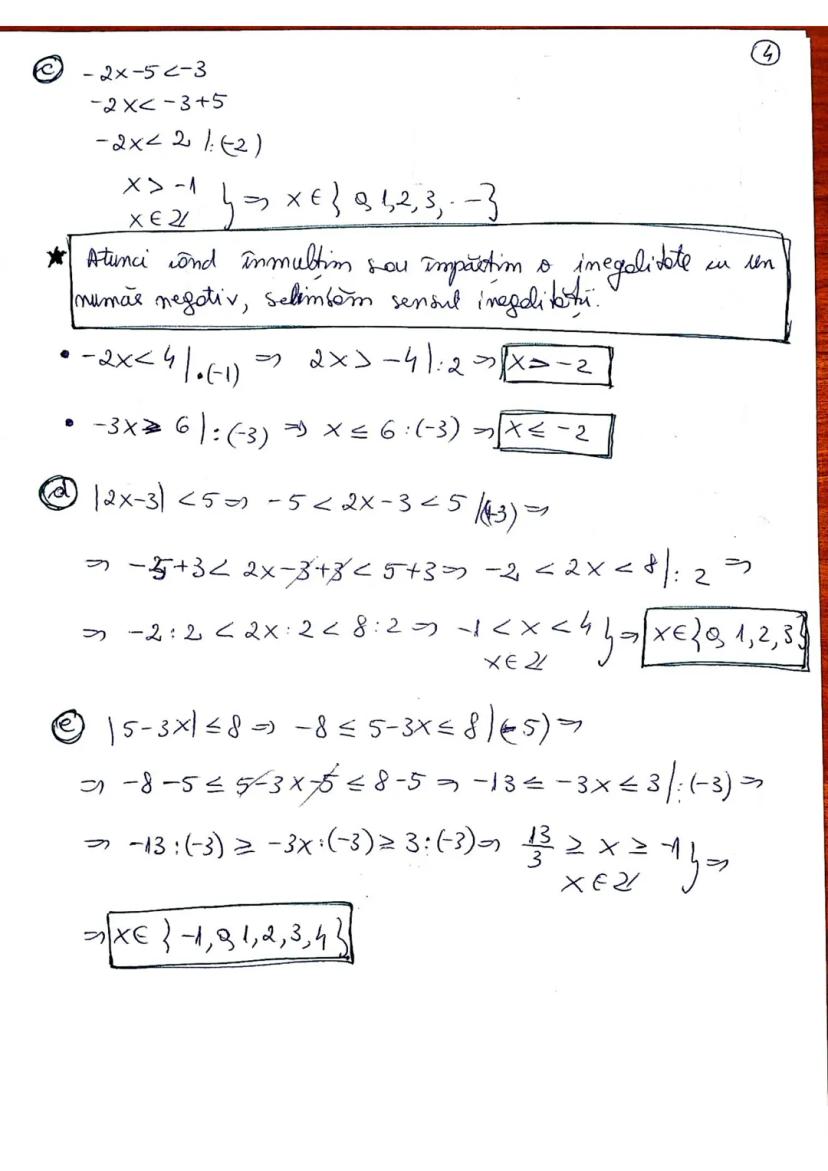 4
c) -2x-5<-3
-2x<-3+5
-2x<2 |:(-2)
x>-1
x∈ℤ } ⇒ x∈{0,1,2,3,...}
★ Atunci când înmulțim sau împărțim o inegalitate cu un
număr negativ, schimbăm sensul inegalității.
• -2x<4|·(-1) ⇒ 2x>-4|:2 ⇒ x>-2
• -3x≥6|:(-3) ⇒ x≤6:(-3) ⇒ x≤-2
d) |2x-3|<5 ⇒ -5<2x-3<5 |(+3) ⇒
⇒ -5+3<2x-3+3<5+3 ⇒ -2<2x<8|:2 ⇒
⇒ -2:2<2x:2<8:2 ⇒ -1<x<4 } ⇒ x∈{0,1,2,3}
x∈ℤ
e) |5-3x|≤8 ⇒ -8≤5-3x≤8|(-5) ⇒
⇒ -8-5≤5-3x-5≤8-5 ⇒ -13≤-3x≤3|:(-3) ⇒
⇒ -13:(-3)≥-3x:(-3)≥3:(-3) ⇒ 13/3≥x≥-1 } ⇒
x∈ℤ
⇒ x∈{-1,0,1,2,3,4}